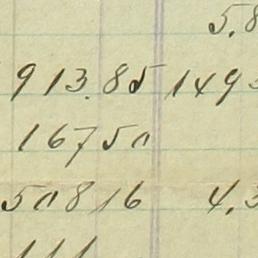 5.8
913.85 149
16750
50816 4.3
111